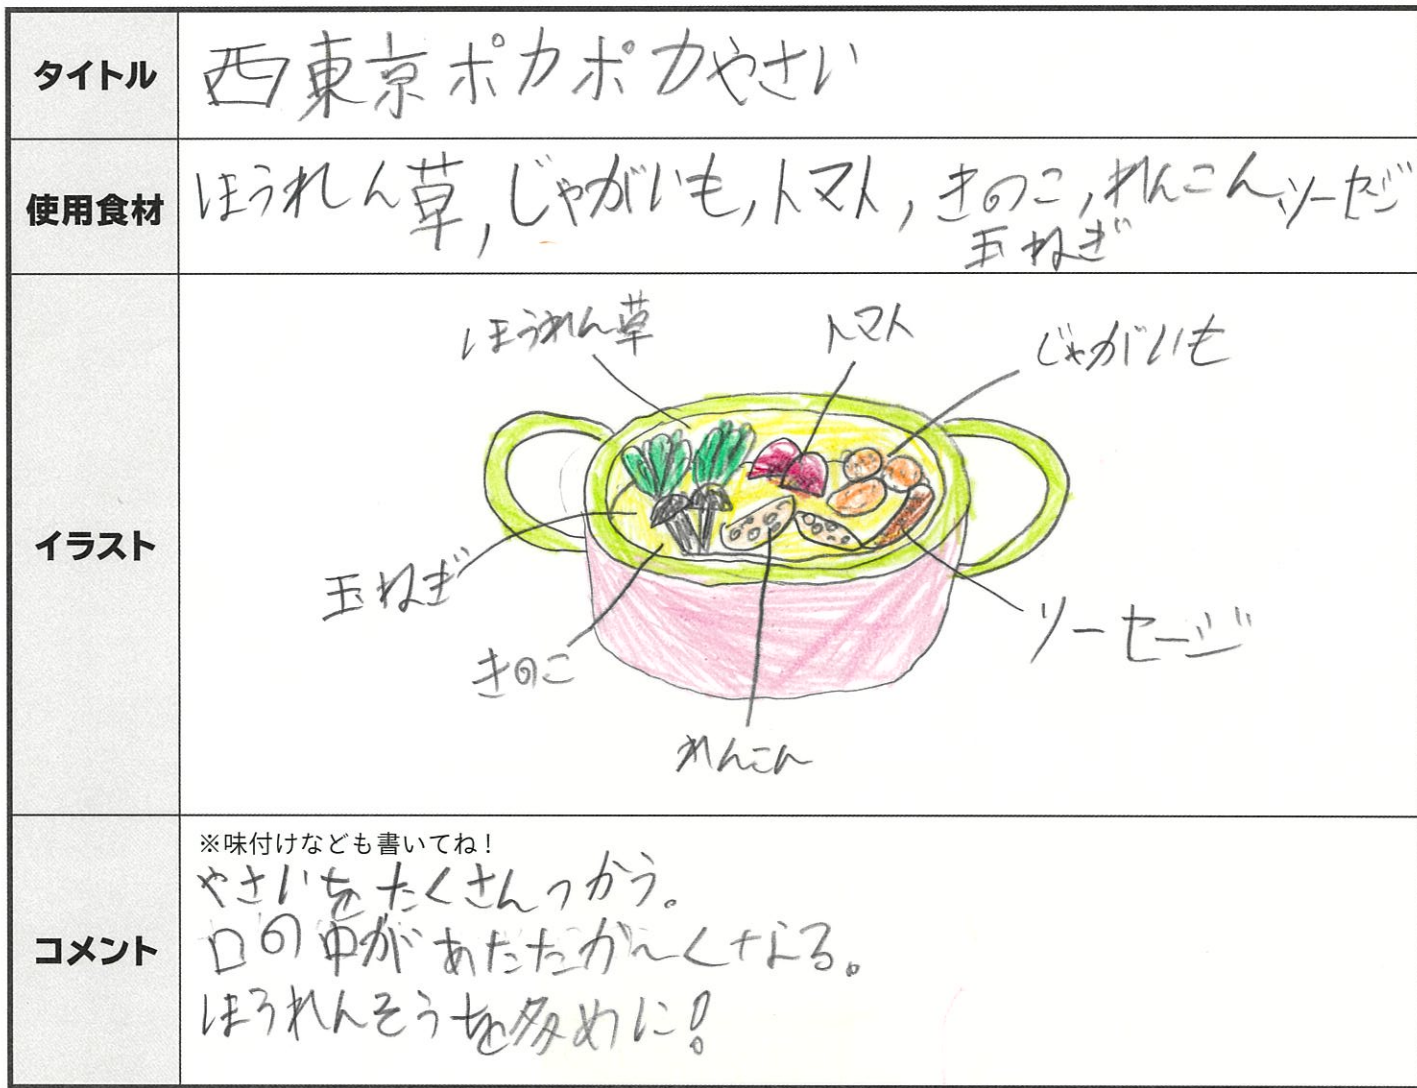 タイトル
西東京ポカポカやさい
使用食材
ほうれん草,じゃがいも,トマト,きのこ,れんこん,ソーセージ
玉ねぎ
イラスト
ほうれん草
トマト
じゃがいも
玉ねぎ
きのこ
れんこん
ソーセージ
コメント
※味付けなども書いてね！
やさいをたくさんつかう。
口の中があたたか〜くなる。
ほうれんそうを多めに！